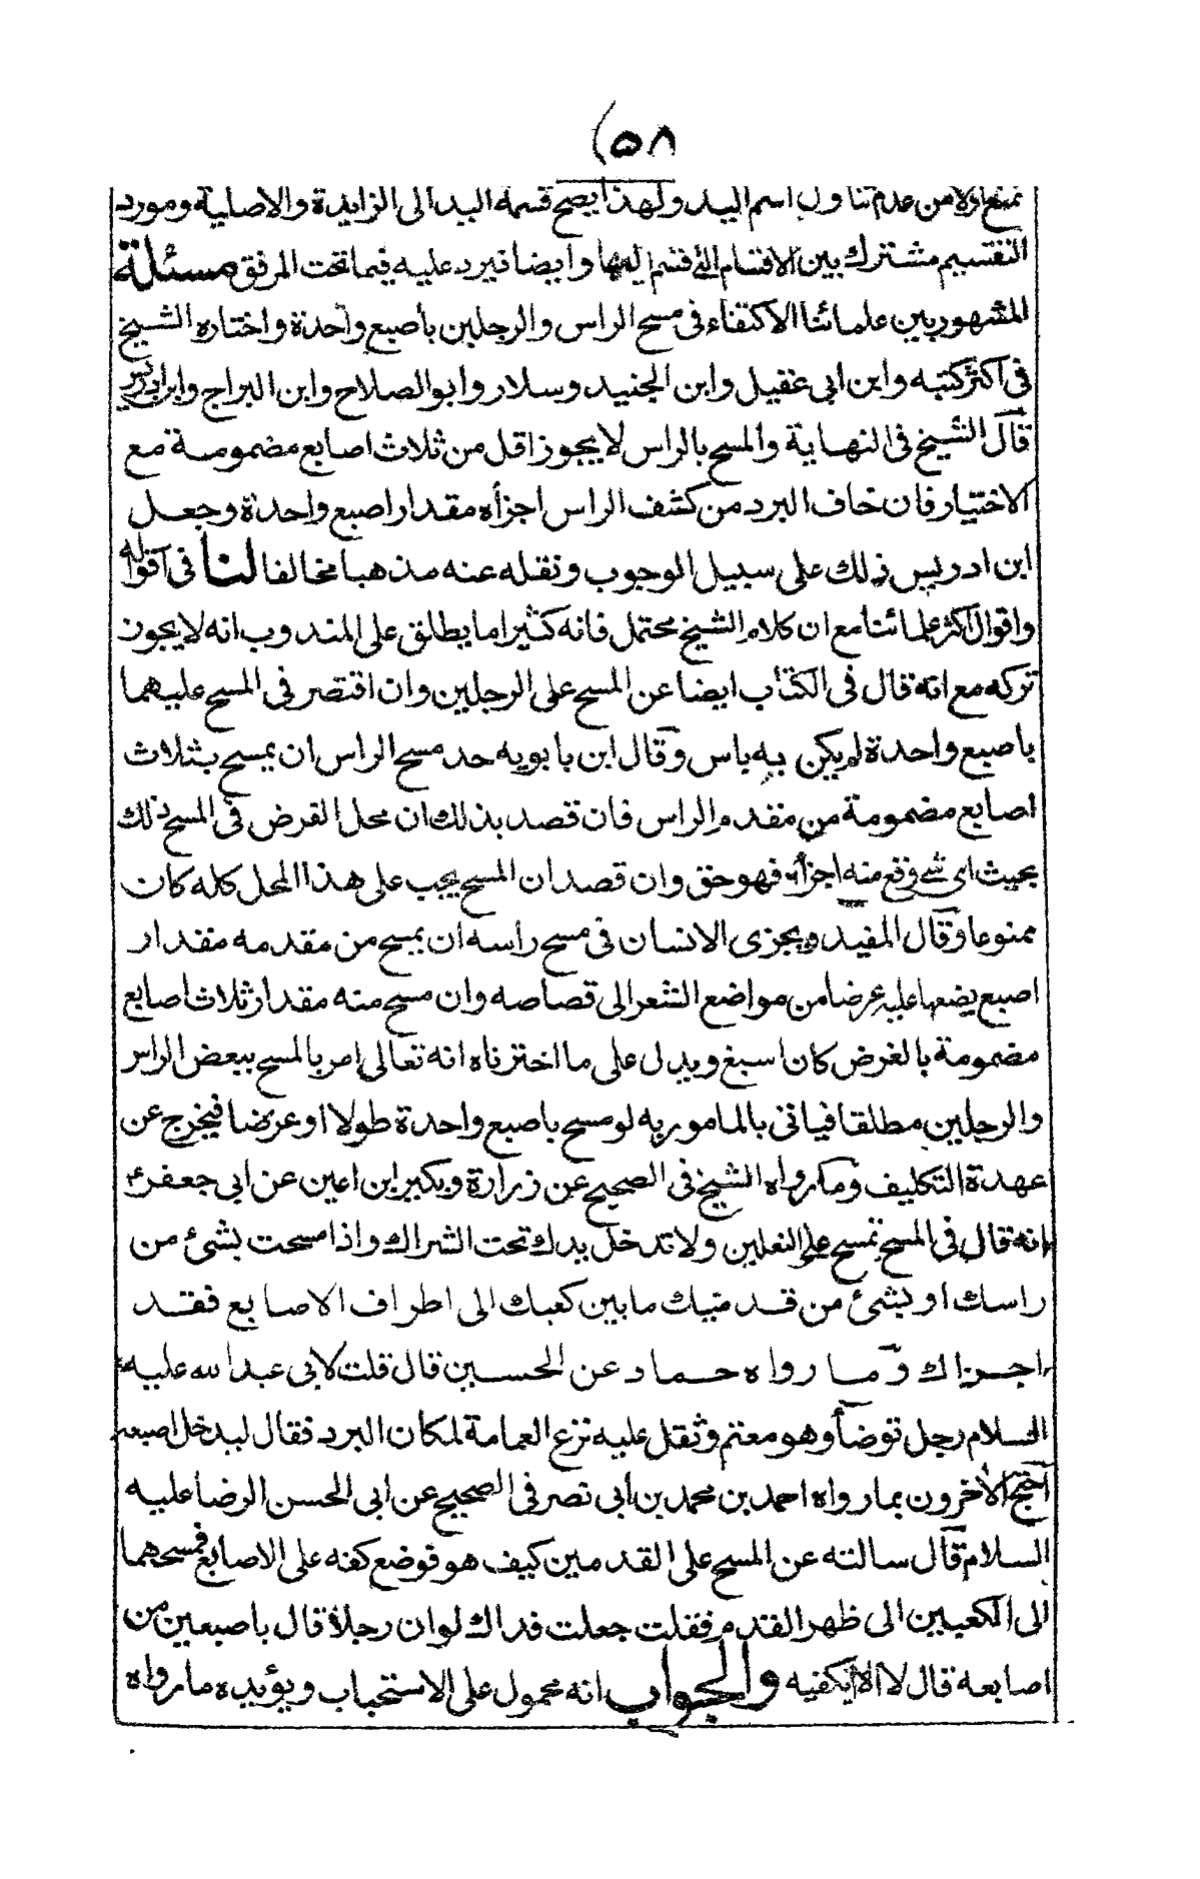 ٥٨
تمنع اولا من عدم تناول اسم اليد ولهذا يصح قسمة اليد الى الزايدة والاصلية ومورد
التقسيم مشترك بين الاقسام التي قسم اليها وايضا نيرد عليه فيما تحت المرفق مسئلة
المشهور بين علمائنا الاكتفاء فى مسح الراس والرجلين باصبع واحدة واختاره الشيخ
فى اكثر كتبه وابن ابى عقيل وابن الجنيد وسلار وابو الصلاح وابن البراج وابن ادريس
قال الشيخ فى النهاية والمسح بالراس لا يجوز اقل من ثلاث اصابع مضمومة مع
الاختيار فان خاف البرد من كشف الراس اجزأه مقدار اصبع واحدة وجعل
ابن ادريس ذلك على سبيل الوجوب ونقله عنه مذهبا مخالفا لنا فى اقواله
واقوال اكثر علمائنا مع ان كلام الشيخ محتمل فانه كثيرا ما يطلق على المندوب انه لا يجوز
تركه مع انه قال فى الكتاب ايضا عن المسح على الرجلين وان اقتصر فى المسح عليهما
باصبع واحدة لم يكن به باس وقال ابن بابويه حد مسح الراس ان يمسح بثلاث
اصابع مضمومة من مقدم الراس فان قصد بذلك ان محل الفرض فى المسح ذلك
بحيث اى شئ وقع منه اجزأه فهو حق وان قصد ان المسح يجب على هذا المحل كله كان
ممنوعا وقال المفيد ويجزى الانسان فى مسح راسه ان يمسح من مقدمه مقدار
اصبع يضعها عليه عرضا من مواضع الشعر الى قصاصه وان مسح منه مقدار ثلاث اصابع
مضمومة بالغرض كان اسبغ ويدل على ما اخترناه انه تعالى امر بالمسح ببعض الراس
والرجلين مطلقا فياتى بالمامور به لو مسح باصبع واحدة طولا او عرضا فيخرج عن
عهدة التكليف وما رواه الشيخ فى الصحيح عن زرارة وبكير ابن اعين عن ابى جعفرع
انه قال فى المسح تمسح على النعلين ولا تدخل يدك تحت الشراك واذا مسحت بشئ من
راسك او بشئ من قدميك ما بين كعبك الى اطراف الاصابع فقد
اجزاك وما رواه حماد عن الحسين قال قلت لابى عبد الله عليه
السلام رجل توضأ وهو معتم وثقل عليه نزع العمامة لمكان البرد فقال ليدخل اصبعه
احتج الآخرون بما رواه احمد بن محمد بن أبى نصر فى الصحيح عن ابى الحسن الرضا عليه
السلام قال سالته عن المسح على القدمين كيف هو فوضع كفه على الاصابع فمسحهما
الى الكعبين الى ظهر القدم فقلت جعلت فداك لو ان رجلا قال باصبعين من
اصابعه قال لا الا يكفيه والجواب انه محمول على الاستحباب ويؤيده ما رواه